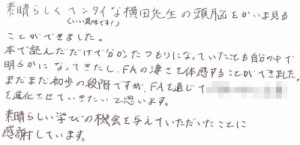 素晴らしくヘンタイな横田先生の頭脳をかいま見る
(いい意味です！)
ことができました。
本で読んだだけで分かったつもりになっていたことも自分の中で
明らかになってきたし、FAの凄さを体感することができました。
まだまだ初歩の段階ですが、FAを通じて
を進化させていきたいと思います。
素晴らしい学びの機会を与えていただいたことに
感謝しています。